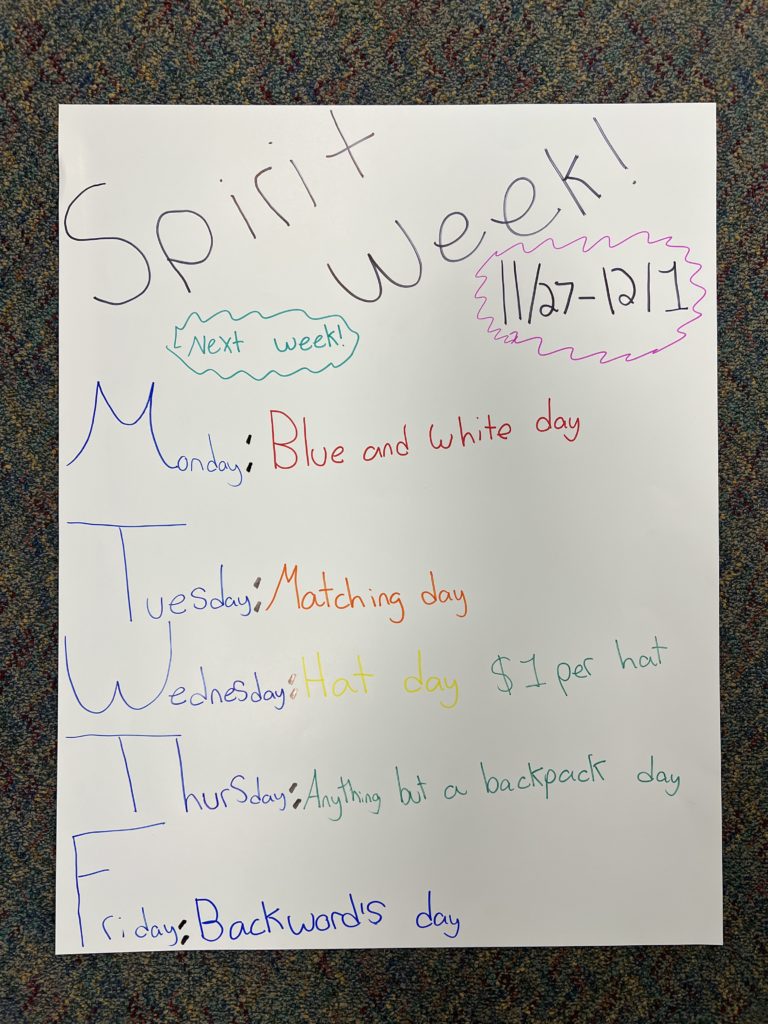 Spirit Week!
11/27-12/1
Next week!
Monday: Blue and white day
Tuesday: Matching day
Wednesday: Hat day $1 per hat
Thursday: Anything but a backpack day
Friday: Backword's day